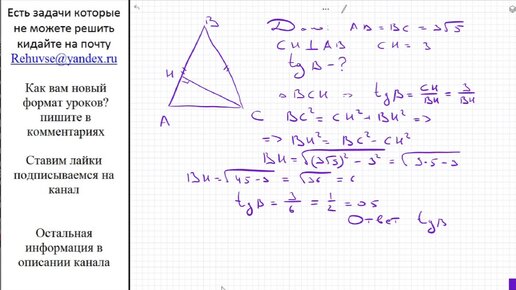 Есть задачи которые
не можете решить
кидайте на почту
Rehuvse@yandex.ru
Как вам новый
формат уроков?
пишите в
комментариях
Ставим лайки
подписываемся на
канал
Остальная
информация в
описании канала
B
H
A
C
Дано: AB = BC = 3√5
CH ⊥ AB CH = 3
tg B - ?
BCH tgB = CH/BH = 3/BH
BC² = CH² + BH² =>
=> BH² = BC² - CH²
BH = √(3√5)² - 3² = √9·5-9
BH = √45-9 = √36 = 6
tgB = 3/6 = 1/2 = 0.5
Ответ tgB